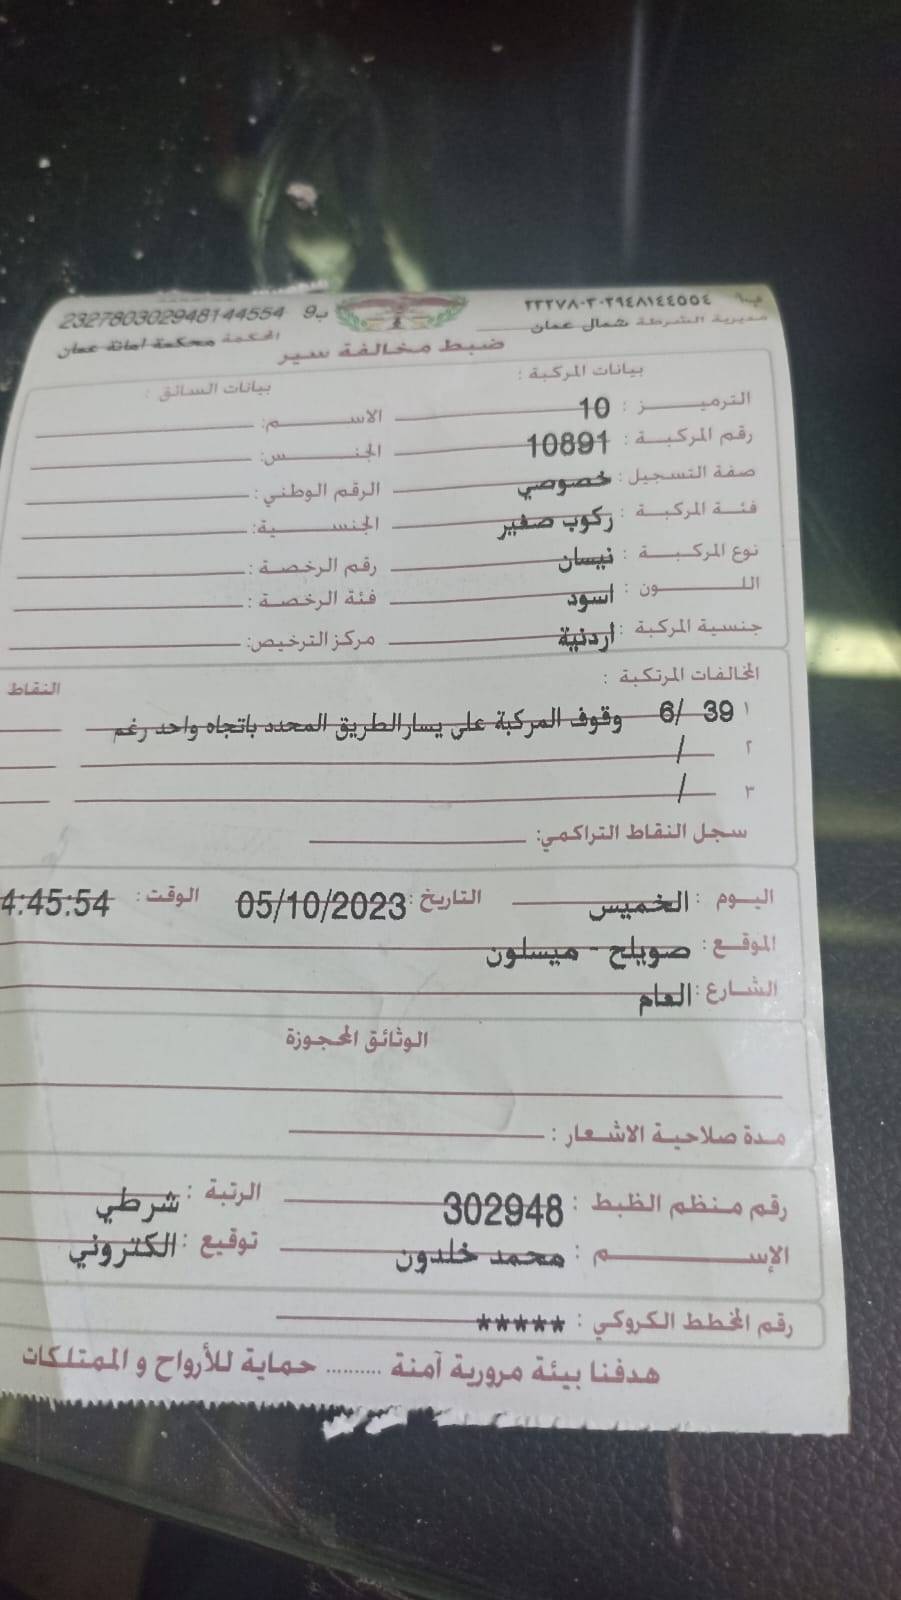 ب9 232780302948144554
٢٣٢٧٨٠٣٠٢٩٤٨١٤٤٥٥٤
مديرية الشرطة شمال عمان
المحكمة محكمة امانة عمان
ضبط مخالفة سير
بيانات المركبة :
بيانات السائق :
الترميز : 10
الاسم:
رقم المركبة : 10891
الجنس:
صفة التسجيل : خصوصي
الرقم الوطني :
فئة المركبة : ركوب صغير
الجنسية:
نوع المركبة : نيسان
رقم الرخصة :
اللون : اسود
فئة الرخصة :
جنسية المركبة : اردنية
مركز الترخيص:
المخالفات المرتكبة :
النقاط
١ 39 /6 وقوف المركبة على يسار الطريق المحدد باتجاه واحد رغم
٢ /
٣ /
سجل النقاط التراكمي:
اليوم : الخميس التاريخ : 05/10/2023 الوقت : 4:45:54
الموقع : صويلح - ميسلون
الشارع : العام
الوثائق المحجوزة
مدة صلاحية الاشعار :
رقم منظم الظبط : 302948 الرتبة : شرطي
الإسم : محمد خلدون توقيع : الكتروني
رقم المخطط الكروكي : *****
هدفنا بيئة مرورية آمنة .......... حماية للأرواح و الممتلكات